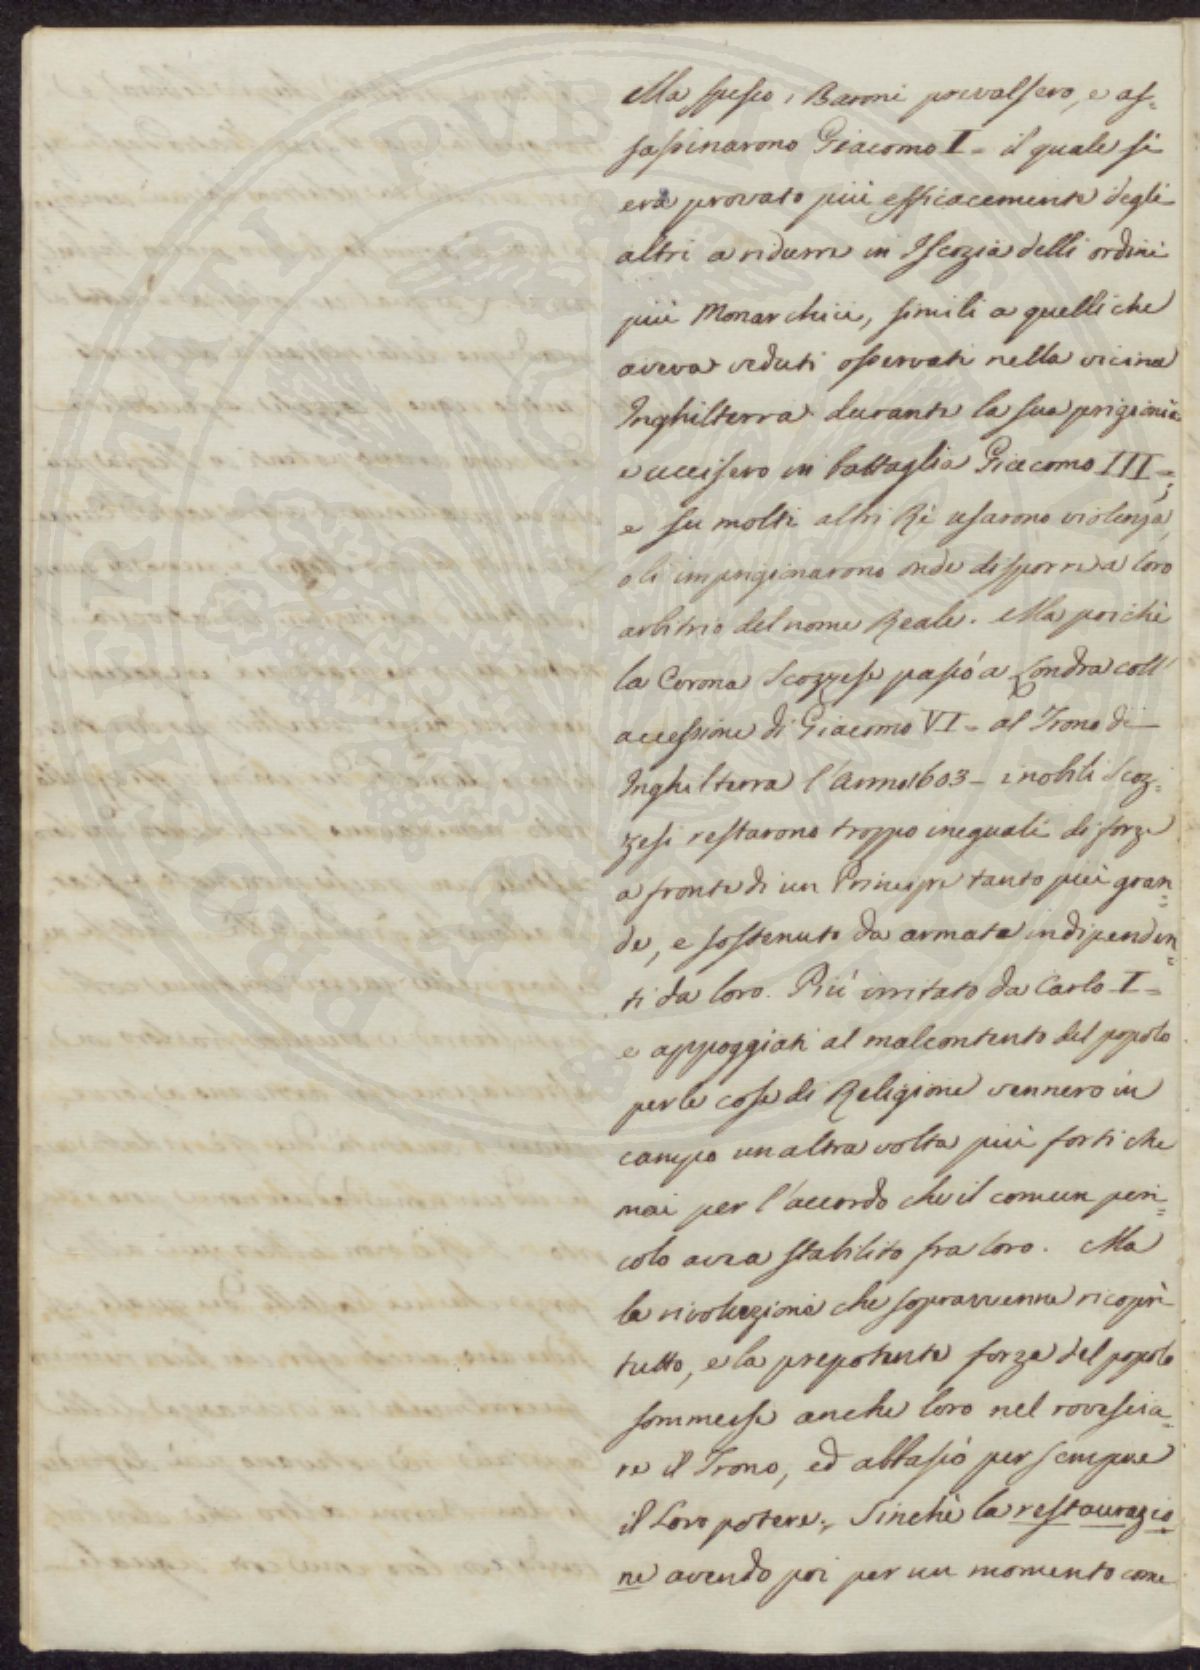 Ma spesso i Baroni prevalsero, e as-
sassinarono Giacomo I= il quale si
era provato più efficacemente degli
altri a ridurre in Iscozia delli ordini
più Monarchici, simili a quelli che
aveva veduti osservati nella vicina
Inghilterra durante la sua prigionia
e uccisero in battaglia Giacomo III=;
e su molti altri Rè usarono violenza,
o li imprigionarono onde disporre a loro
arbitrio del nome Reale. Ma poichè
la Corona Scozzese passò a Londra coll'
accessione di Giacomo VI= al Trono di
Inghilterra l'anno 1603= i nobili Scoz-
zesi restarono troppo ineguali di forze
a fronte di un Principe tanto più gran=
de, e sostenuto da armata indipenden=
ti da loro. Più irritato da Carlo I=
e appoggiati al malcontento del popolo
per le cose di Religione vennero in
campo un altra volta più forti che
mai per l'accordo che il comun peri=
colo avea stabilito fra loro. Ma
la rivoluzione che sopravvenne ricoprì
tutto, e la prepotente forza del popolo
sommerse anche loro nel rovescia=
re il Trono, ed abbassò per sempre
il Loro potere; Sinchè la restaurazio
ne avendo poi per un momento come